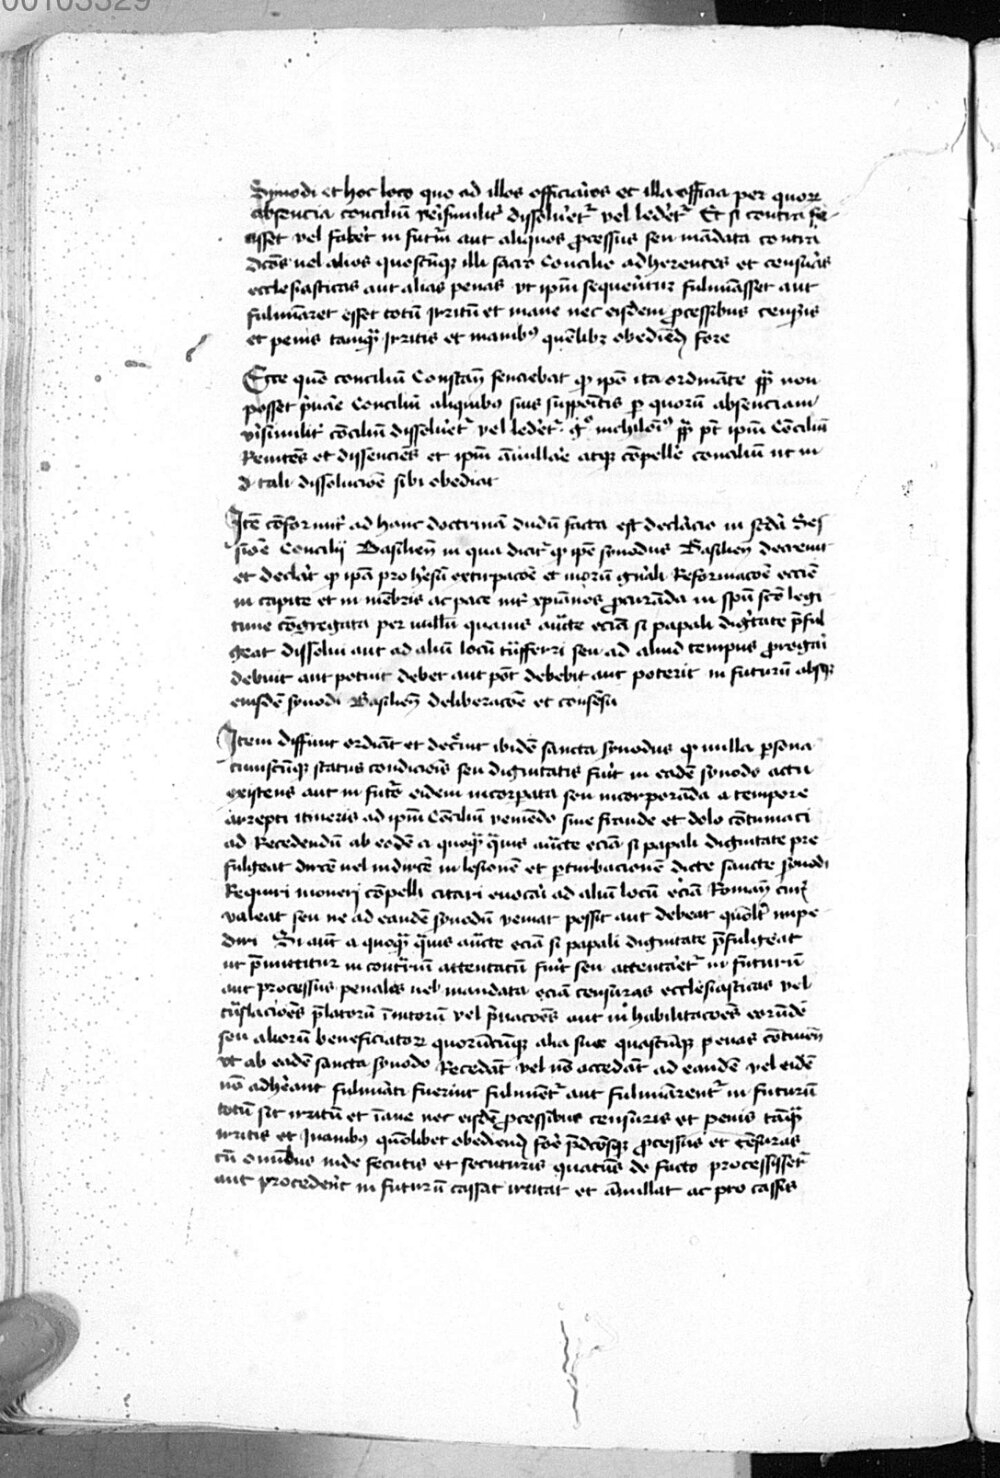 00103329
Synodi et hoc loco quo ad illos officiarios et illa officia per quor
absencia conciliū verisimilit' dissolueret' vel lederet' Et si contra fe
cisset vel faceret in futur̄ aut aliquos processus seu mādata contra
dictos vel alios quoscūq; illi sacro Concilio adherentes et censuras
ecclesiasticas aut alias penas vt ip̄m sequerentur fulminasset aut
fulminaret esset totū irritū et inane nec eisdem processibus censuris
et penis tamq̄ irritis et inanibꝰ quēlibꝫ obediend fore
Ecce quō conciliū Constan̄ senciebat qꝫ ip̄o ita ordināte pp̄ non
posset priuare Conciliū aliquibꝰ suis supp̄oitis per quorū absenciam
verisimilit' conciliū dissolueret' vel lederet' gͦ nichilomiꝰ pp̄ pt̄ ip̄m Conciliū
Renitēs et dissenciēs et ip̄m ānullare atqꝫ cōpelle conciliū ut in
tali dissolucioē sibi obediat
Itē cōformit' ad hanc doctrinā dudū facta est declaracio in secūda Ses
sioē Concilij Basilien̄ in qua dicit' qꝫ ip̄e synodus Basilien̄ decreuit
et declarat qꝫ ip̄a pro heresū extirpacōe et morū gn̄ali Reformacōe eccīe
in capite et in mēbris ac pace int' xp̄ianos procurāda in sp̄u scō legi
time cōgregata per nullū quauis auctē eciā si papali dignitate p̄ful
geat dissolui aut ad aliū locū trāsferri seu ad aliud tempus prorogari
debuit aut potuit debet aut pōt debebit aut poterit in futurū absqꝫ
eiusdē synodi Basilien̄ deliberacōe et consēsu
Item diffiniit ordīat et decernit ibidē sancta synodus qꝫ nulla persona
cuiuscūqꝫ status condicionis seu dignitatis fuerit in eadē synodo actu
existens aut in futuro eidem incorporata seu incorporāda a tempore
arrepti itineris ad ip̄m Conciliū veniendo siue fraude et dolo cōtumaci
ad Recedendū ab eodē a quoqꝫ q̄uis auctē eciā si papali dignitate pre
fulgeat directe vel indirecte in lesionē et perturbacionē dicte sancte synodi
Requiri moueri cōpelli citari euocari ad aliū locū eciā Roman̄ curiā
valeat seu ne ad eandē synodū veniat possit aut debeat quōlꝫ impe
diri Si aut a quoqꝫ q̄uis auctē eciā si papali dignitate p̄fulgeat
ut p̄mittitur in contrariū attentatū fuerit seu attentaret' in futurū
aut processus penales vel mandata eciā censuras ecclesiasticas vel
trāslacioēs p̄latorū īuitorū vel p̄uacioēs aut inhabilitacoēs eorūdē
seu aliorū beneficiatorꝫ quorūcūqꝫ alia siue quascūqꝫ penas cōtinen̄
vt ab eadē sancta synodo Recedāt vel nō accedāt ad eandē vel eidē
nō adhereant fulminati fuerint fulminēt' aut fulminarent' in futurū
totū sit irritū et ināne nec eisdē processibus censuris et penis tāqꝫ
irritis et Inanibꝰ quōlibet obediend fore p̄dictosqꝫ processus et cēsuras
cū omnibus inde secutis et secuturis quatūs de facto processisset'
aut procederēt in futurū cassat irritat et ānullat ac pro cassis